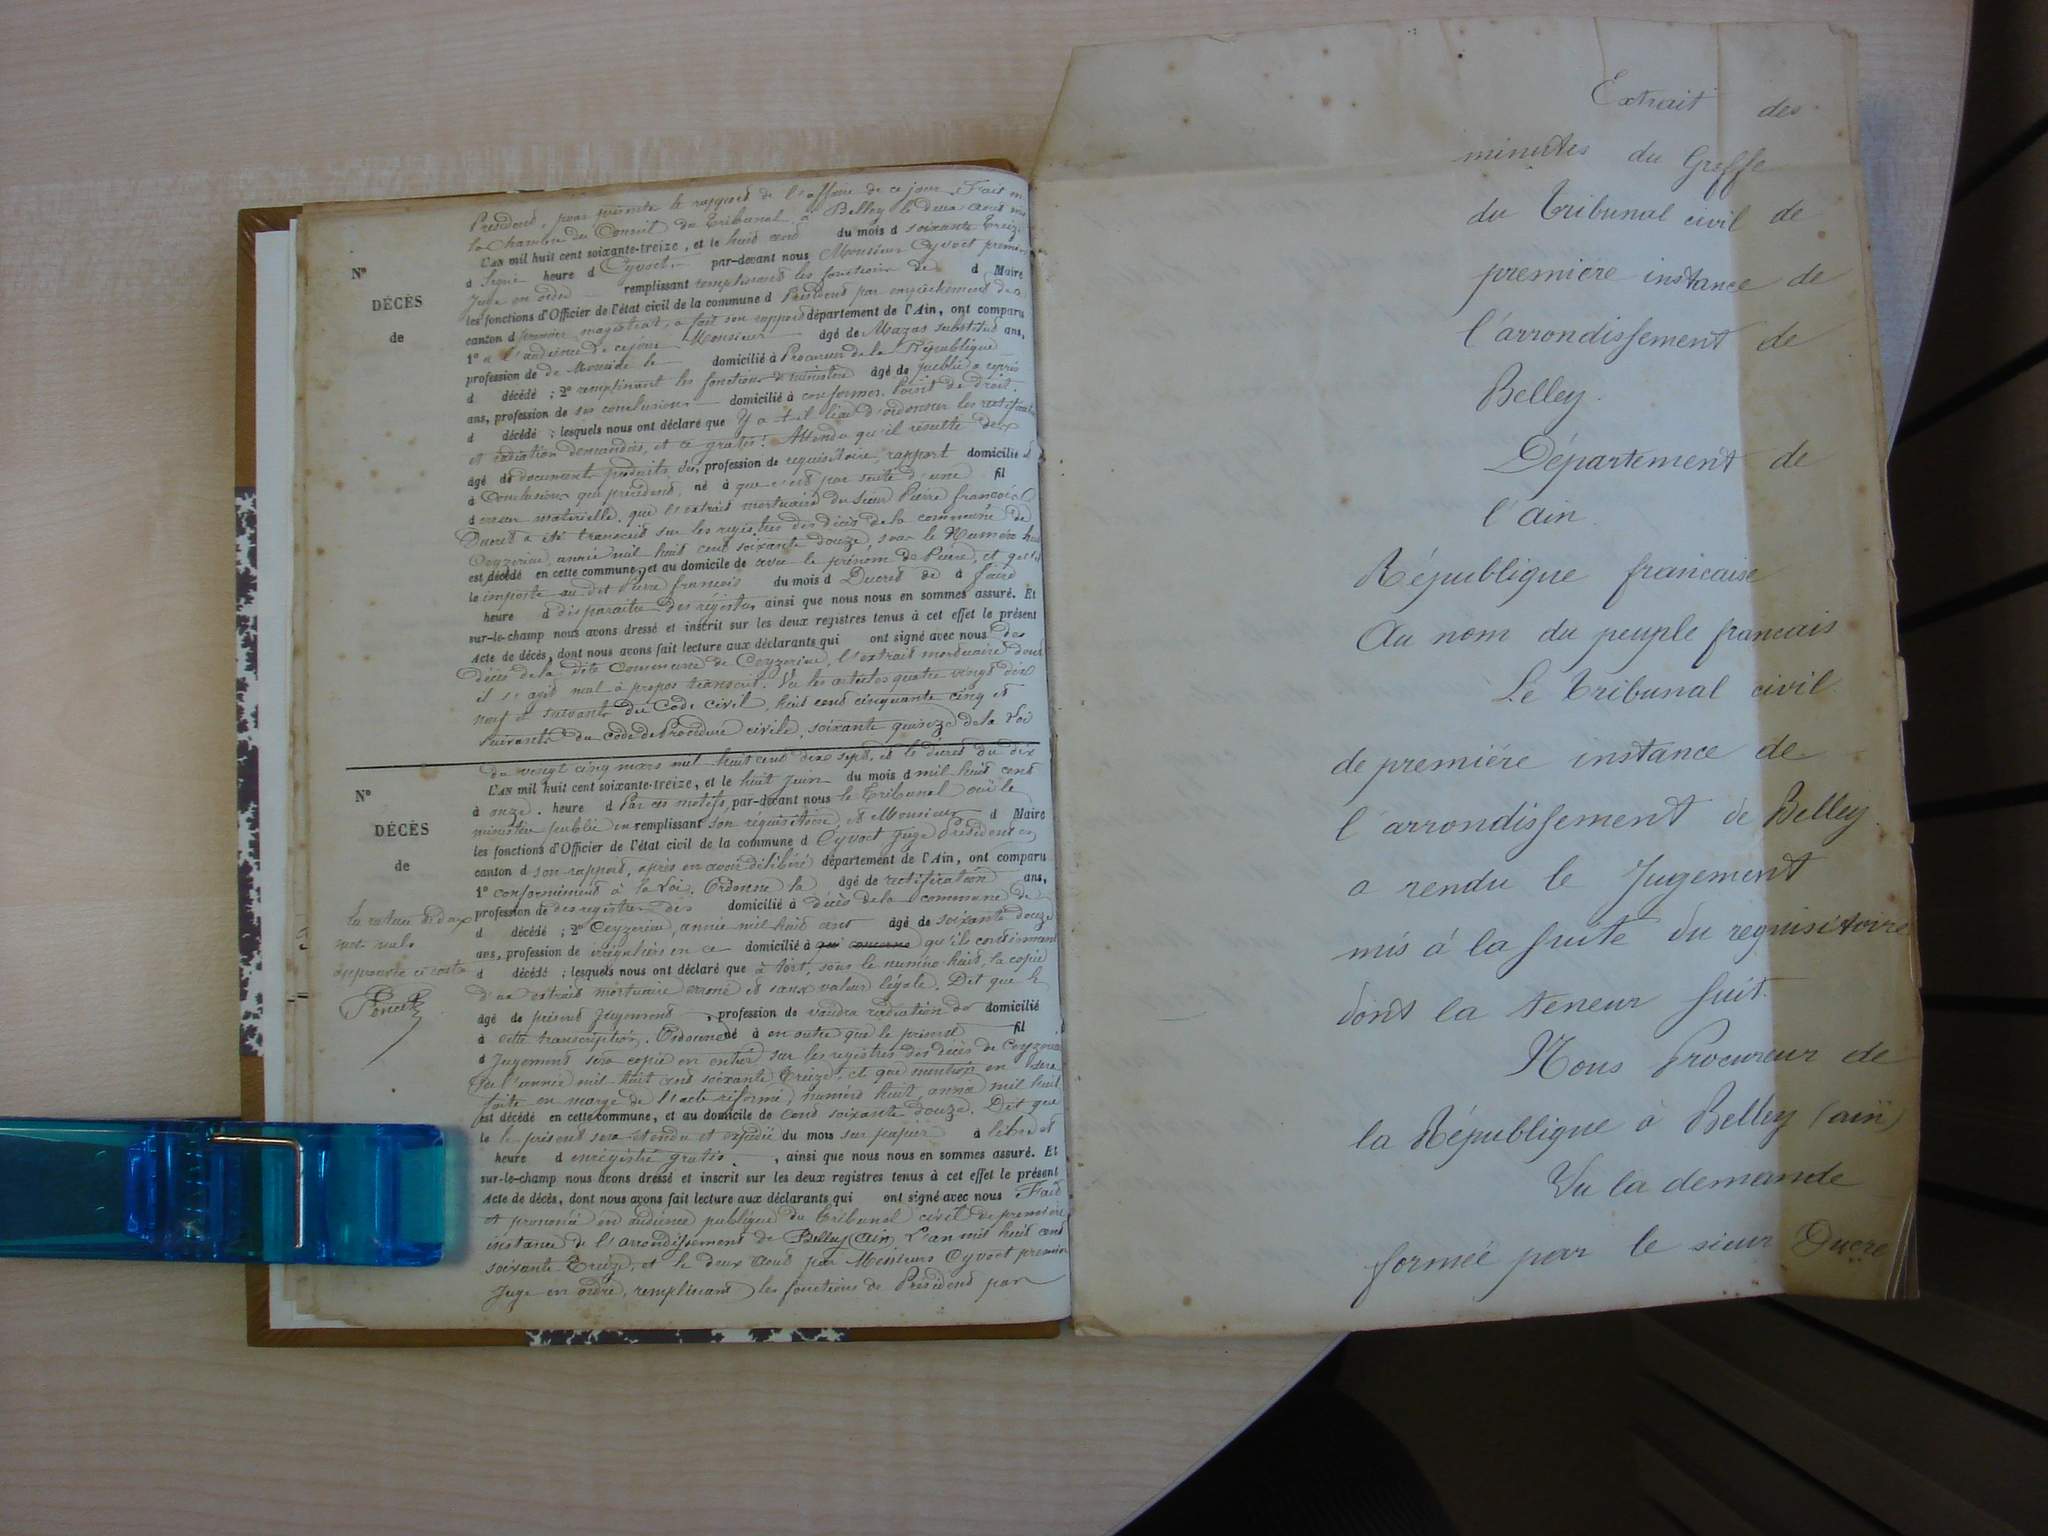 Président, pour présenter le rapport de l'affaire de ce jour. Fait en
la Chambre du Conseil du Tribunal, à Belley le deux août mil
L'AN mil huit cent soixante-treize, et le huit cent du mois d soixante Treize
N° à Signé heure d Cyvoct. par-devant nous Monsieur Cyvoct premier
Juge en ordre remplissant remplissant les fonctions de d Maire
DÉCÈS les fonctions d'Officier de l'état civil de la commune d Président par empêchement de
canton d premier magistrat, a fait son rapport département de l'Ain, ont comparu
de 1° à l'audience de ce jour Monsieur âgé de Mazas substitut ans,
profession de de Monsieur le domicilié à Procureur de la République
d décédé ; 2° remplissant les fonctions de ministère âgé de public a repris
ans, profession de ses conclusions domicilié à conformes. Point de droit.
d décédé ; lesquels nous ont déclaré que Y a-t-il lieu d'ordonner les rectification
et radiation demandées, et ce gratis ! Attendu qu'il résulte des
âgé de documents produits, des, profession de requisitoire, rapport domicilié
à Conclusions qui précèdent, né à que c'est par suite d'une fil
d erreur matérielle, que l'extrait mortuaire du sieur Pierre françois
Ducret a été transcrit sur les registres des décès de la commune de
Ceyzerieu, année mil huit cent soixante douze, sous le Numéro huit
est décédé en cette commune, et au domicile de avec le prénom de Pierre, et qu'il
le importe au dit Pierre françois du mois d Ducret de à faire
heure d disparaitre des registres, ainsi que nous nous en sommes assuré. Et
sur-le-champ nous avons dressé et inscrit sur les deux registres tenus à cet effet le présent
Acte de décès, dont nous avons fait lecture aux déclarants qui ont signé avec nous des
décès de la dite Commune de Ceyzerieu, l'extrait mortuaire dont
il s'agit mal à propos transcrit. Vu les articles quatre vingt dix
neuf et suivants du Code civil, huit cent cinquante cinq et
suivants du code de Procédure civile, soixante quinze de la Loi
du vingt cinq mars mil huit cent dix sept, et le décret du dix
L'AN mil huit cent soixante-treize, et le huit Juin du mois d mil huit cent
N° à onze. heure d Par ces motifs, par-devant nous le Tribunal ouï le
ministère public en remplissant son réquisitoire, et Monsieur d Maire
DÉCÈS les fonctions d'Officier de l'état civil de la commune d Cyvoct Juge Président en
canton d son rapport, après en avoir délibéré département de l'Ain, ont comparu
de 1° conformément à la Loi. Ordonne la âgé de rectification ans,
profession de des registres des domicilié à décès de la commune de
d décédé ; 2° Ceyzerieu, année mil huit cent âgé de soixante douze
ans, profession de irréguliers en ce domicilié à qui concerne qu'ils contiennent
d décédé ; lesquels nous ont déclaré que à tort, sous le numéro huit, la copie
d'un extrait mortuaire erroné et sans valeur légale. Dit que le
âgé de présent Jugement, profession de vaudra radiation de domicilié
à cette transcription. Ordonne né à en outre que le présent fil
d Jugement sera copié en entier sur les registres des décès de Ceyzerieu
de l'année mil huit cent soixante Treize, et que mention en sera
faite en marge de l'acte réformé, numéro huit, année mil huit
est décédé en cette commune, et au domicile de cent soixante douze. Dit que
le le présent sera étendu et expédié du mois sur papier à libre et
heure d enrégistré gratis. , ainsi que nous nous en sommes assuré. Et
sur-le-champ nous avons dressé et inscrit sur les deux registres tenus à cet effet le présent
Acte de décès, dont nous avons fait lecture aux déclarants qui ont signé avec nous Fait
et prononcé en audience publique du tribunal civil de première
instance de l'arrondissement de Belley (Ain) L'an mil huit cent
soixante Treize, et le deux août par Messieurs Cyvoct premier
Juge en ordre, remplissant les fonctions de Président par
la rature de deux
mots nuls
approuvée ci contre
Poncet
Extrait des
minutes du Greffe
du Tribunal civil de
première instance de
l'arrondissement de
Belley.
Département de
l'ain
République francaise
Au nom du peuple francais
Le Tribunal civil
de première instance de
l'arrondissement de Belley
a rendu le Jugement
mis à la suite du requisitoire
dont la teneur suit.
Nous Procureur de
la République à Belley (ain)
Vu la demande
formée par le sieur Ducre